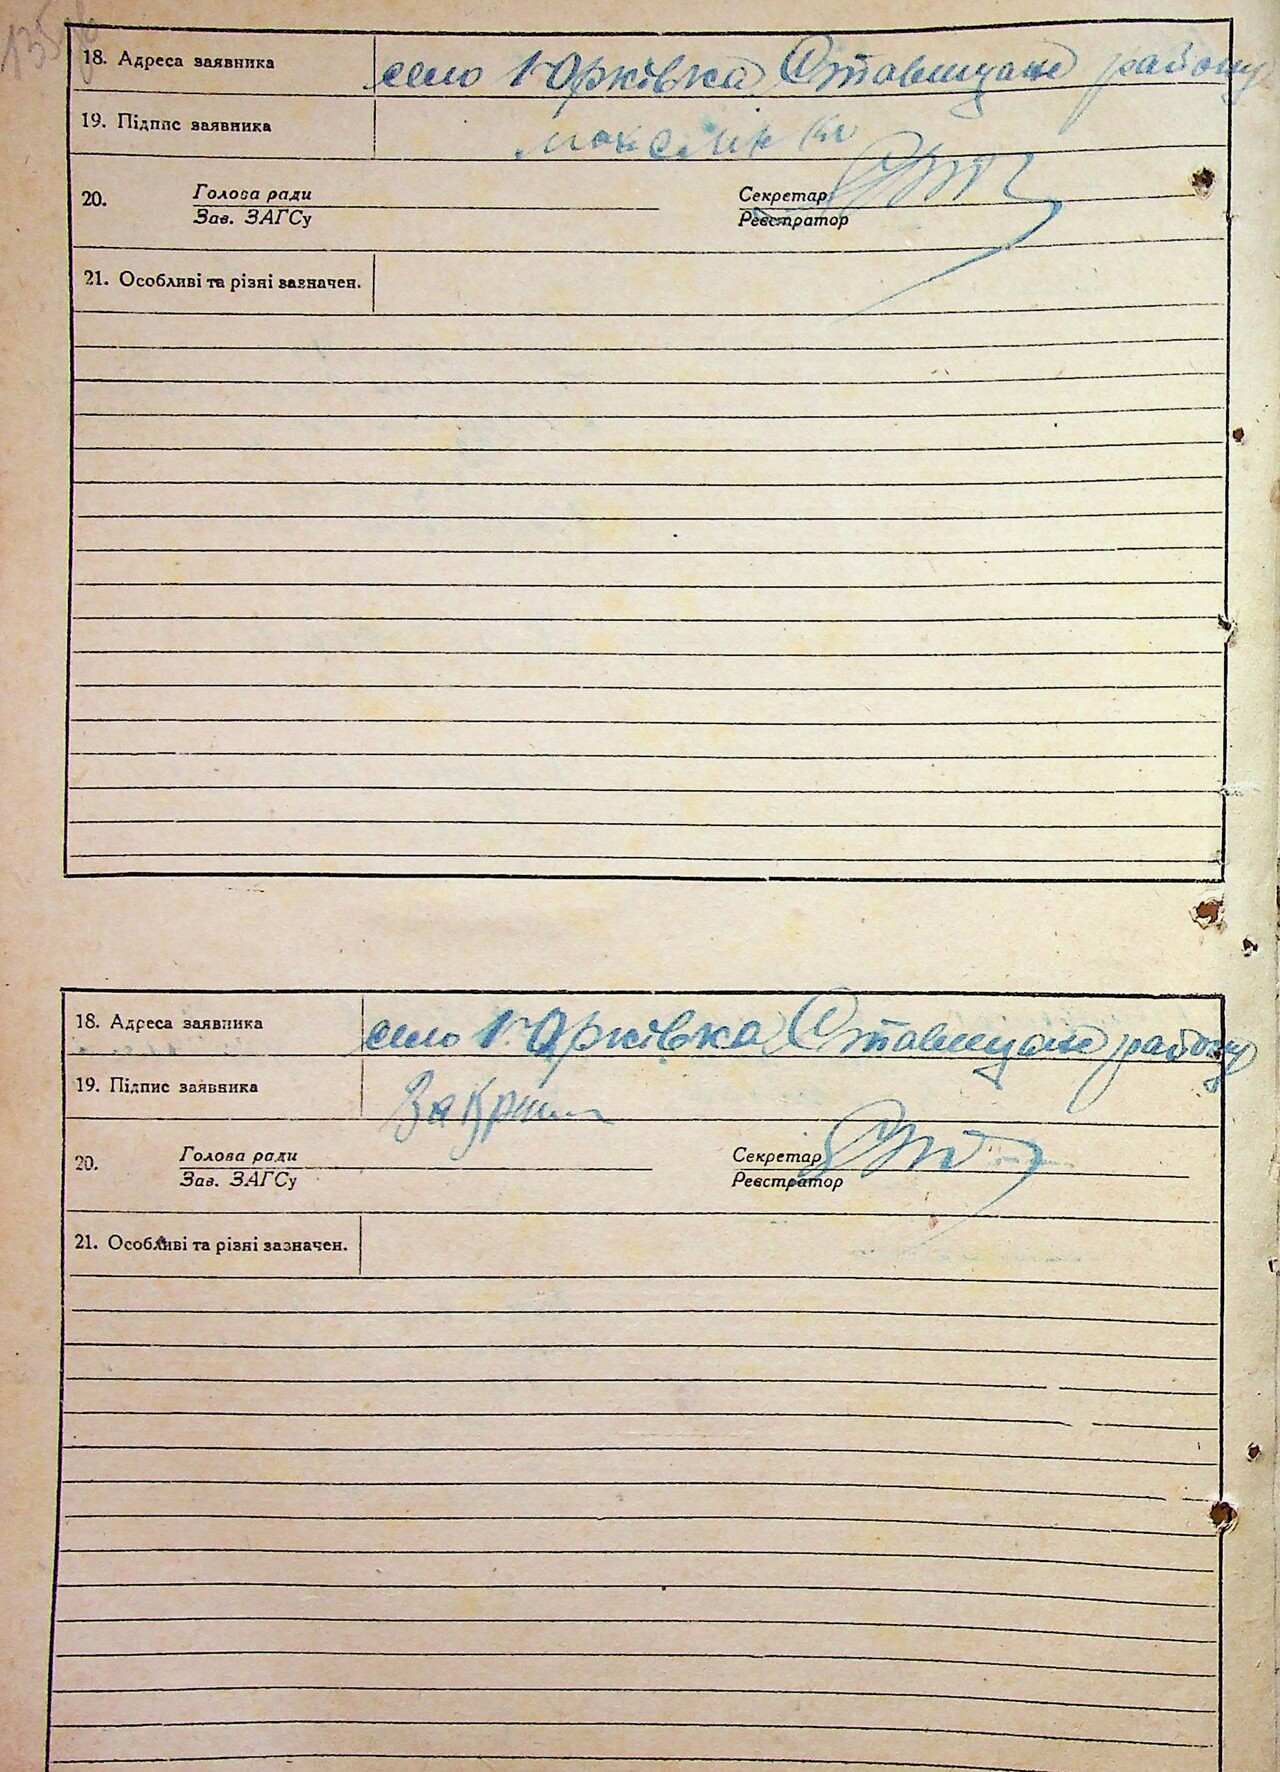 18. Адреса заявника село Юрківка Ставищане району
19. Підпис заявника
20. Голова ради Секретар
Зав. ЗАГСу Реєстратор
21. Особливі та різні зазначен.
18. Адреса заявника село Юрківка Ставищане району
19. Підпис заявника
20. Голова ради Секретар
Зав. ЗАГСу Реєстратор
21. Особливі та різні зазначен.